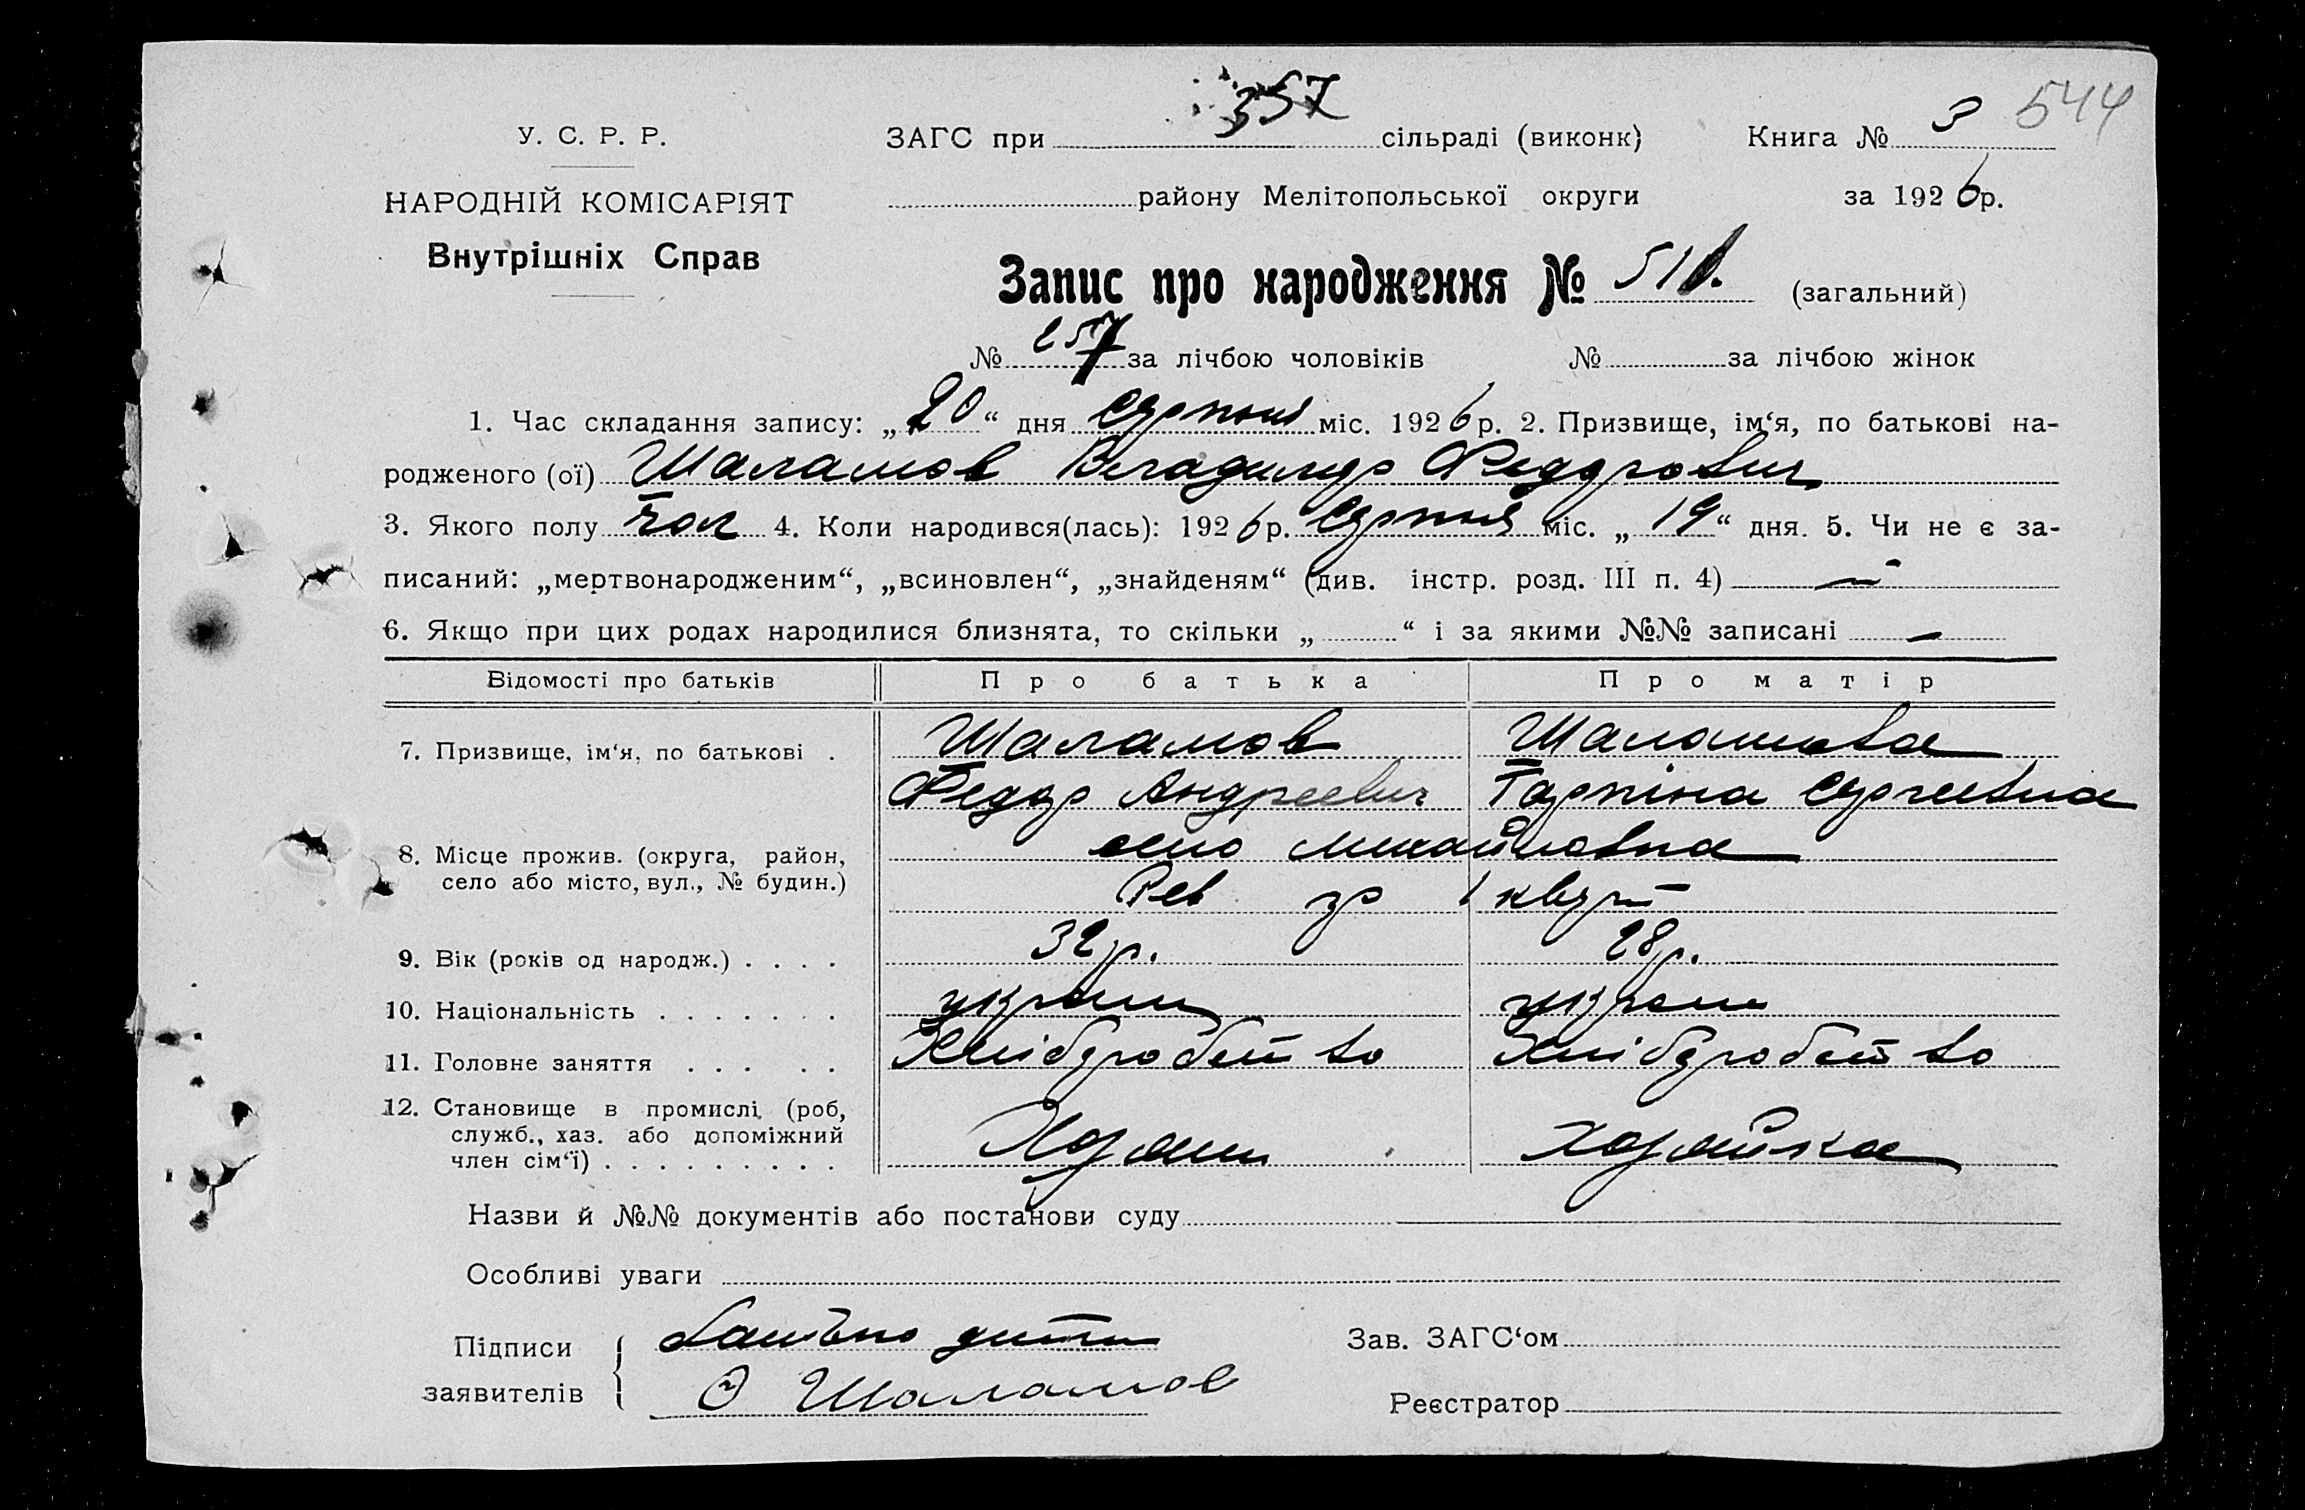 544
У. С. Р. Р.
ЗАГС при 357 сільраді (виконк)
Книга № 3
НАРОДНІЙ КОМІСАРІЯТ
району Мелітопольської округи
за 1926р.
Внутрішніх Справ
Запис про народження № 511. (загальний)
№ 257 за лічбою чоловіків № за лічбою жінок
1. Час складання запису: „20“ дня серпня міс. 1926р. 2. Призвище, ім‘я, по батькові на-
родженого (ої) Шаламов Владимир Федорович
3. Якого полу чол 4. Коли народився(лась): 1926р. серпня міс. „19“ дня. 5. Чи не є за-
писаний: „мертвонародженим“, „всиновлен“, „знайденям“ (див. інстр. розд. III п. 4) —
6. Якщо при цих родах народилися близнята, то скільки „ “ і за якими №№ записані —
Відомості про батьків Про батька Про матір
7. Призвище, ім‘я, по батькові . Шаламов Шаламова
Федор Андреевич Гарпіна Сергеевна
8. Місце прожив. (округа, район, село Михайловка
село або місто, вул., № будин.)
Рев 1
9. Вік (років од народж.) . . . . 32р. 28р.
10. Національність . . . . . . . украин украин
11. Головне заняття . . . . . Хліборобство Хліборобство
12. Становище в промислі (роб,
служб., хаз. або допоміжний Хозяин Хозяйка
член сім‘ї) . . . . . . . . .
Назви й №№ документів або постанови суду
Особливі уваги
Підписи дити
Зав. ЗАГС‘ом
заявителів Ф Шаламов
Реєстратор